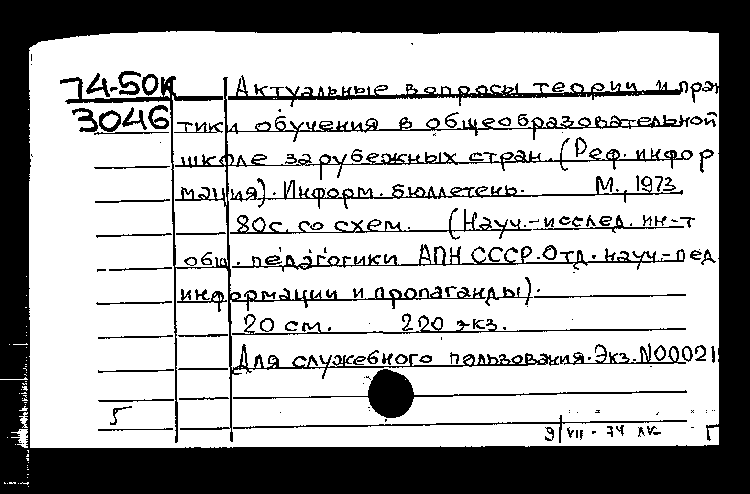 74-50к Актуальные вопросы теории и прак
3046 тики обучения в общеобразовательной
школе зарубежных стран. (Реф. инфор
мация). Информ. бюллетень. М., 1973.
80с. со схем. (Науч.-исслед. ин-т
общ. педагогики АПН СССР. Отд. науч.-пед.
информации и пропаганды).
20 см. 220 экз.
Для служебного пользования. Экз. N00021
5
9/VII-74